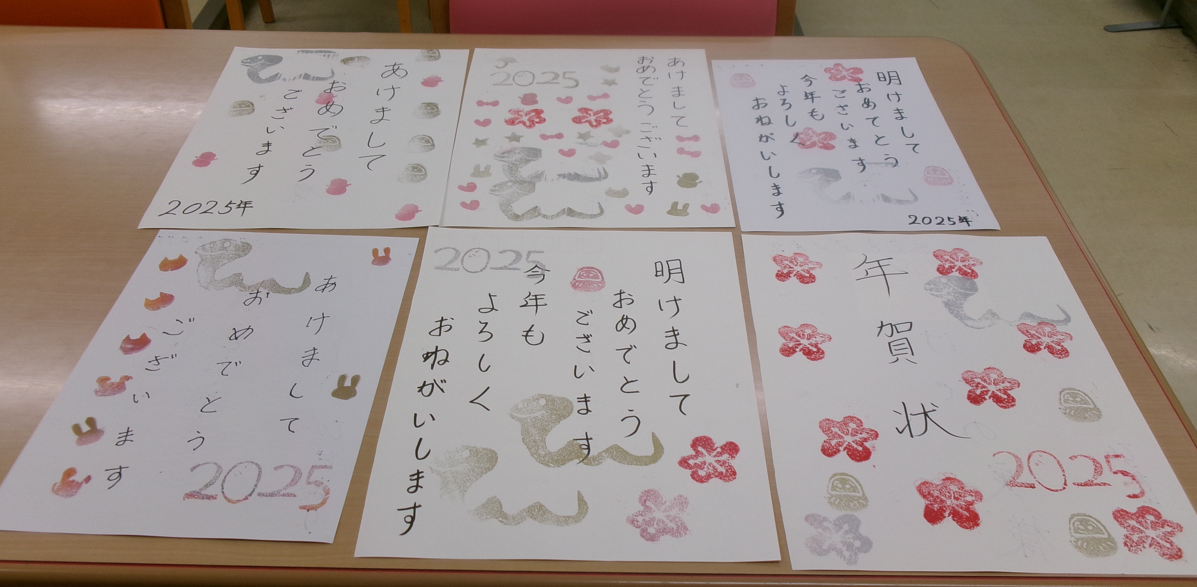 あけまして
おめでとう
ございます
2025年
2025
あけまして
おめでとうございます
明けまして
おめでとう
ございます
今年も
よろしく
おねがいします
2025年
あけまして
おめでとう
ございます
2025
2025
明けまして
おめでとう
ございます
今年も
よろしく
おねがいします
年賀状
2025